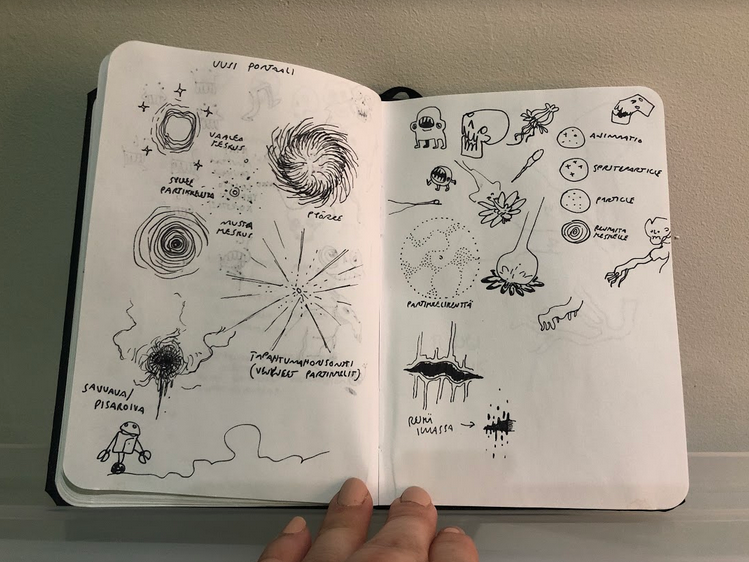 UUSI PORTAALI
VAALEA
KESKUS
SYKEE
PARTIKKELEITA
MUSTA
KESKUS
PYÖRRE
TAPAHTUMAHORISONTTI
(VENYNEET PARTIKKELIT)
SAVUAVA/
PISAROIVA
ANIMAATIO
SPRITEPARTICLE
PARTICLE
REUNASTA
KESKELLE
PARTIKKELIKENTTÄ
REIKÄ
ILMASSA